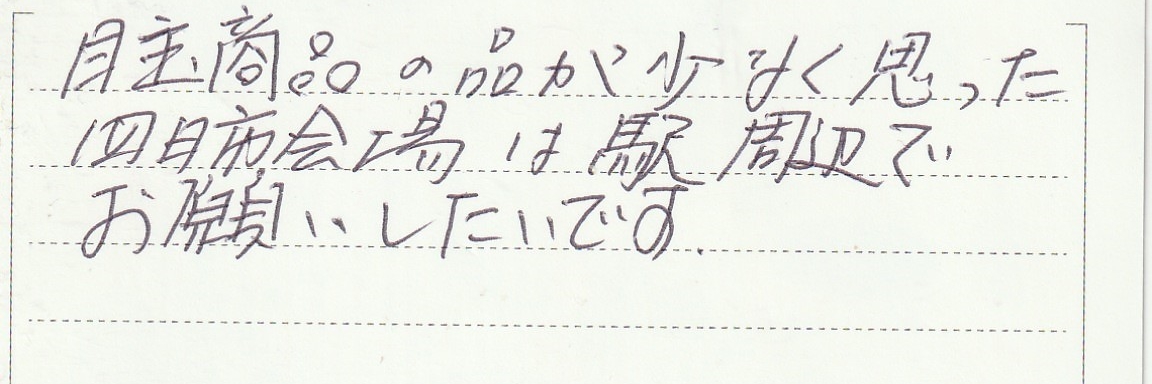 目玉商品の品が少なく思った
四日市会場は駅周辺で
お願いしたいです.